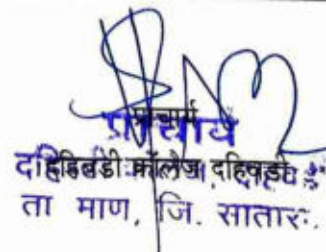 प्राचार्य
दहिवडी कॉलेज दहिवडी
ता माण, जि. सातारा.